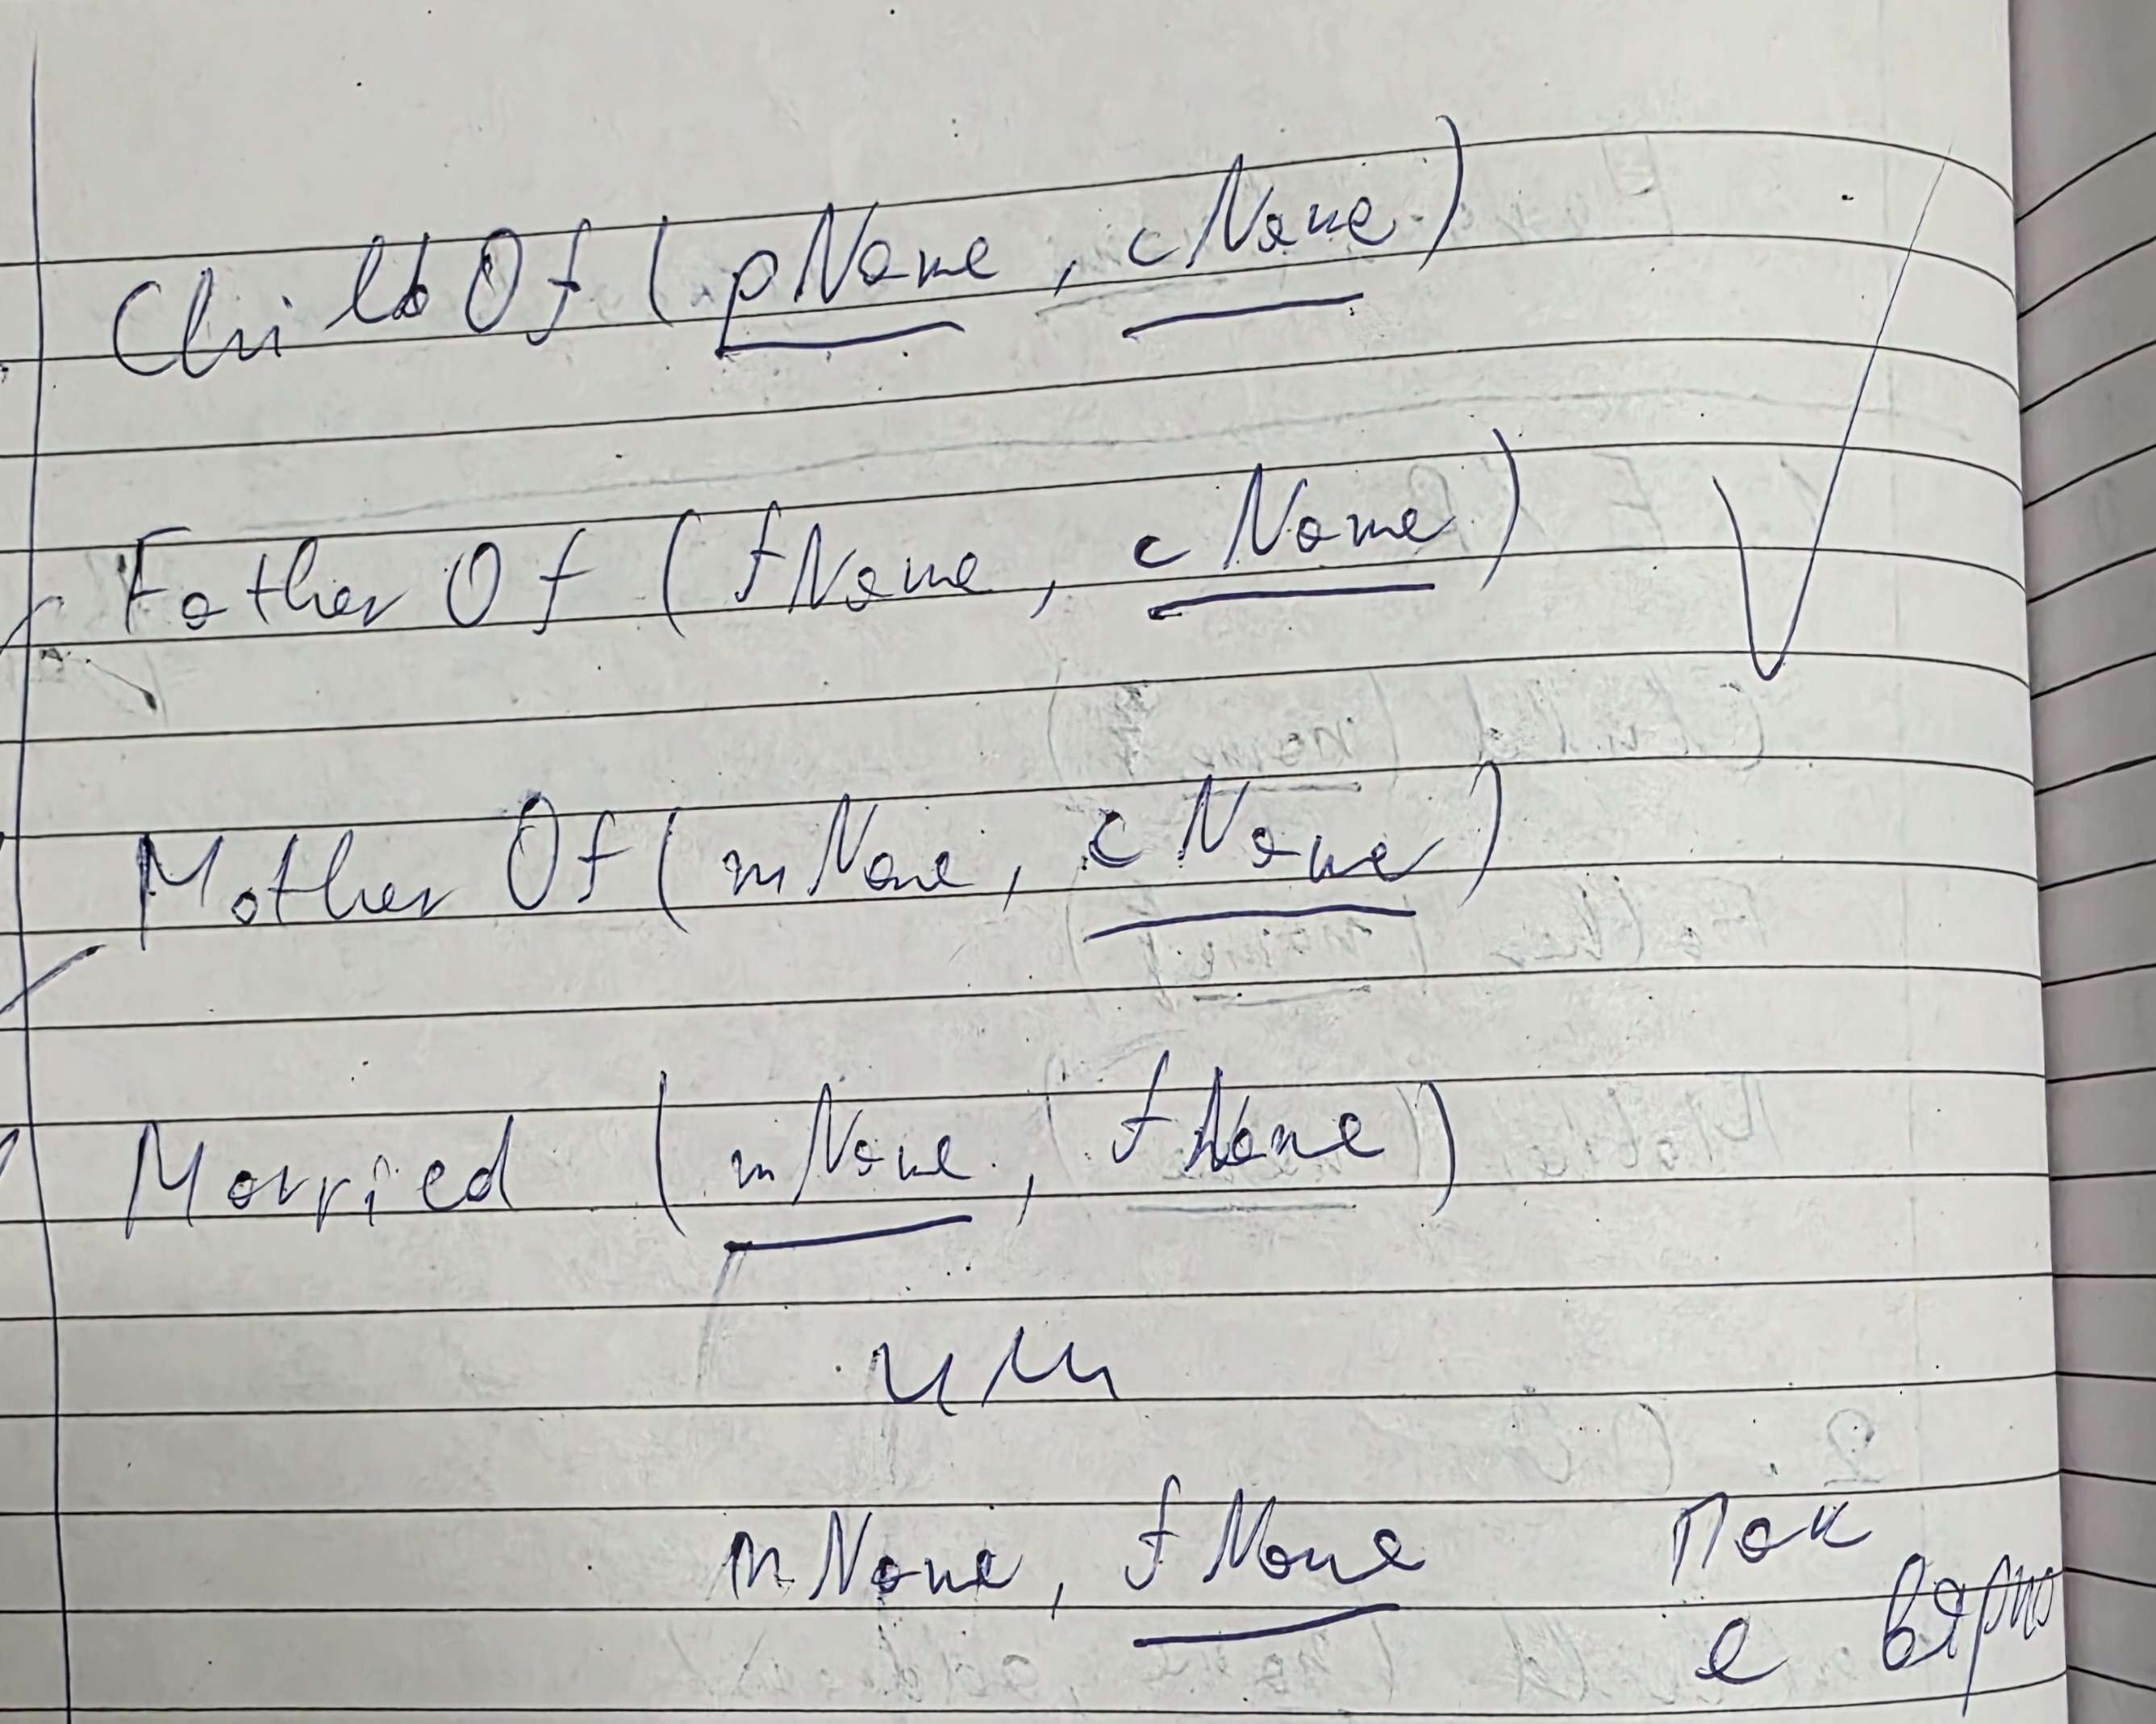 ChildOf (pName, cName)
FatherOf (fName, cName)
MotherOf (mName, cName)
Married (mName, fName)
или
mName, fName пак
е вярно